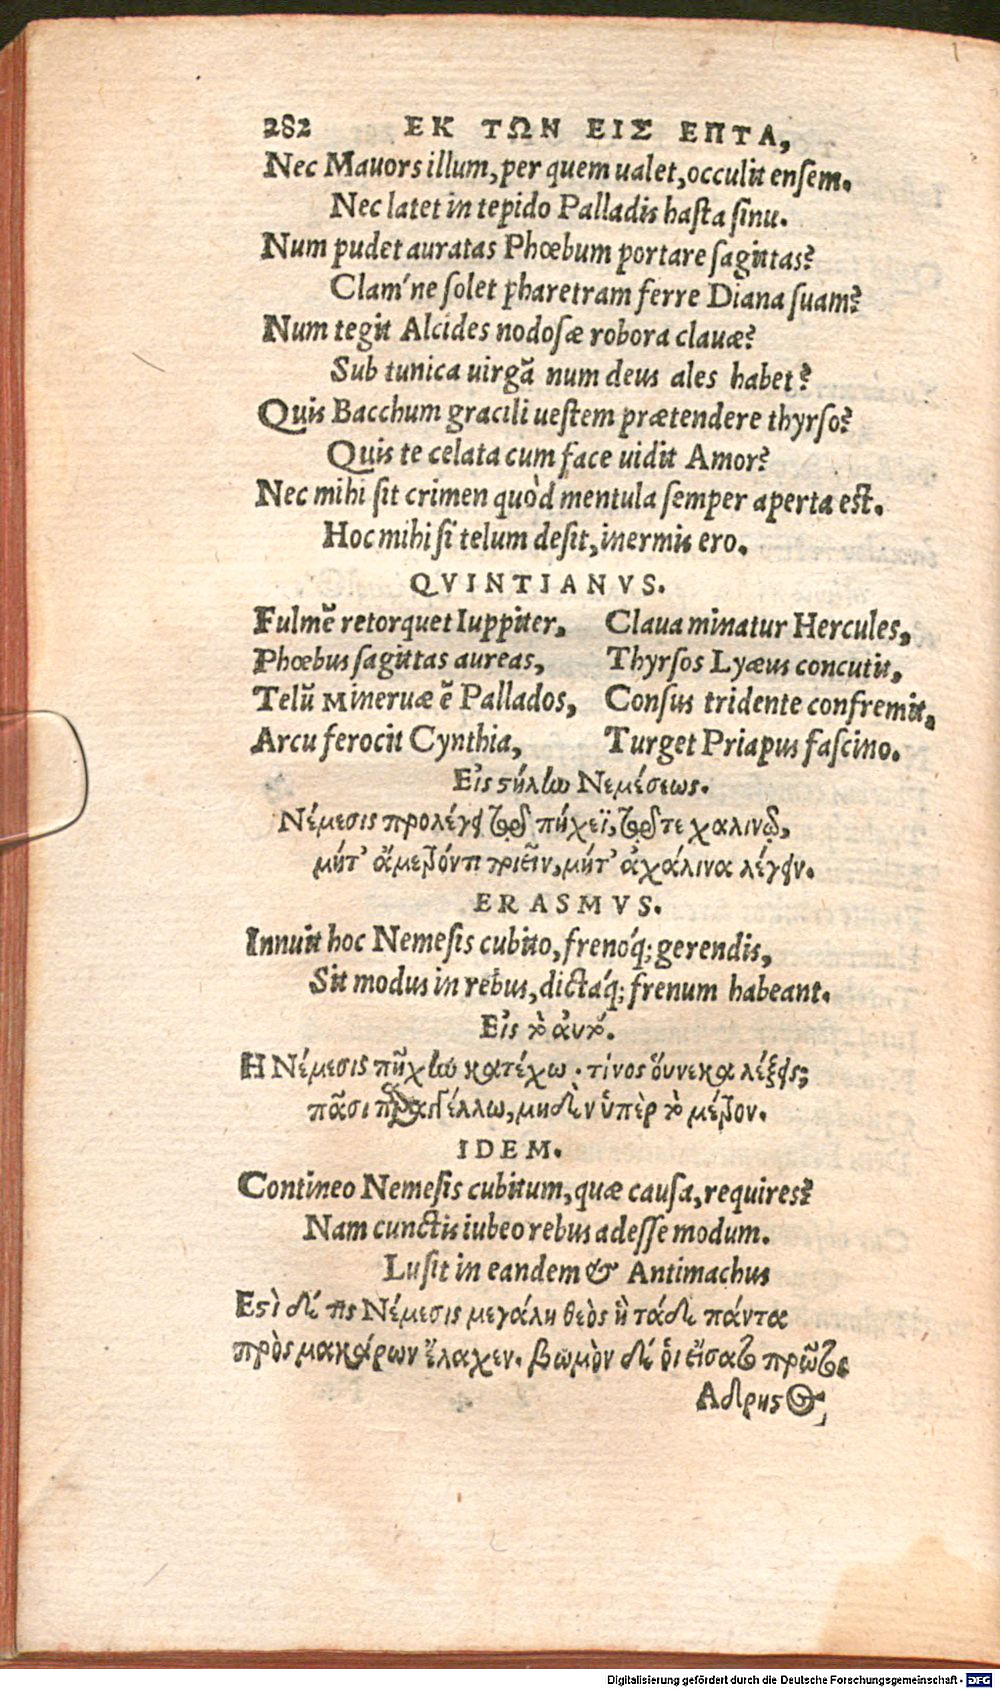 282 ΕΚ ΤΩΝ ΕΙΣ ΕΠΤΑ,
Nec Mauors illum, per quem ualet, occulit ensem.
Nec latet in tepido Palladis hasta sinu.
Num pudet auratas Phœbum portare sagittas?
Clam´ne solet pharetram ferre Diana suam?
Num tegit Alcides nodosæ robora clauæ?
Sub tunica uirgã num deus ales habet?
Quis Bacchum gracili uestem prætendere thyrso?
Quis te celata cum face uidit Amor?
Nec mihi sit crimen quòd mentula semper aperta est.
Hoc mihi si telum desit, inermis ero.
QVINTIANVS.
Fulmẽ retorquet Iuppiter,
Phœbus sagittas aureas,
Telũ Mineruæ ẽ Pallados,
Arcu ferocit Cynthia,
Claua minatur Hercules,
Thyrsos Lyæus concutit,
Consus tridente confremit,
Turget Priapus fascino.
Εἰς στήλίω Νεμέσεως.
Νέμεσις προλέγει τῷδε πήχεϊ, τῷδέ τε χαλινῷ,
μήτ᾽ ἄμετρόν τι ποιεῖν, μήτ᾽ ἀχάλινα λέγειν.
ERASMVS.
Innuit hoc Nemesis cubito, frenóq; gerendis,
Sit modus in rebus, dictáq; frenum habeant.
Εἰς τὸ αὐτό.
Η Νέμεσις πῆχιω κατέχω· τίνος οὕνεκα λέξεις;
πᾶσι παραγγέλλω, μηδὲν ὑπὲρ τὸ μέτρον.
IDEM.
Contineo Nemesis cubitum, quæ causa, requires?
Nam cunctis iubeo rebus adesse modum.
Lusit in eandem & Antimachus
Εστὶ δέ τις Νέμεσις μεγάλη θεὸς ἣ τάδε πάντα
πρὸς μακάρων ἔλαχεν. βωμὸν δέ οἱ εἵσατο πρῶτος
Αδρηστος,
Digitalisierung gefördert durch die Deutsche Forschungsgemeinschaft - DFG